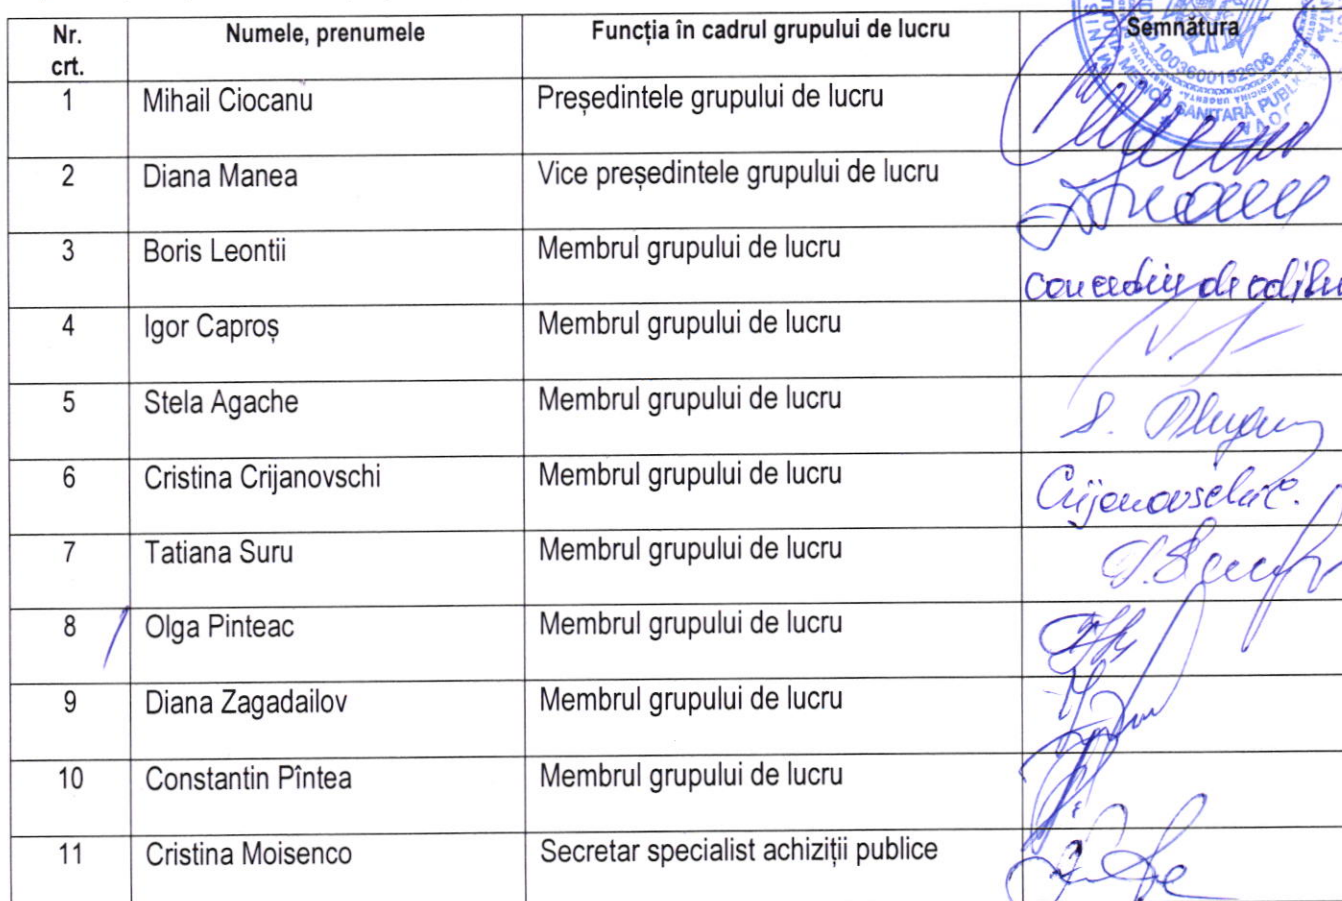 Nr. crt. Numele, prenumele Funcția în cadrul grupului de lucru Semnătura
1 Mihail Ciocanu Președintele grupului de lucru
2 Diana Manea Vice președintele grupului de lucru
3 Boris Leontii Membrul grupului de lucru
4 Igor Caproș Membrul grupului de lucru
5 Stela Agache Membrul grupului de lucru
6 Cristina Crijanovschi Membrul grupului de lucru Crijanovschi C.
7 Tatiana Suru Membrul grupului de lucru
8 Olga Pinteac Membrul grupului de lucru
9 Diana Zagadailov Membrul grupului de lucru
10 Constantin Pîntea Membrul grupului de lucru
11 Cristina Moisenco Secretar specialist achiziții publice
1003600152606
SANITARĂ